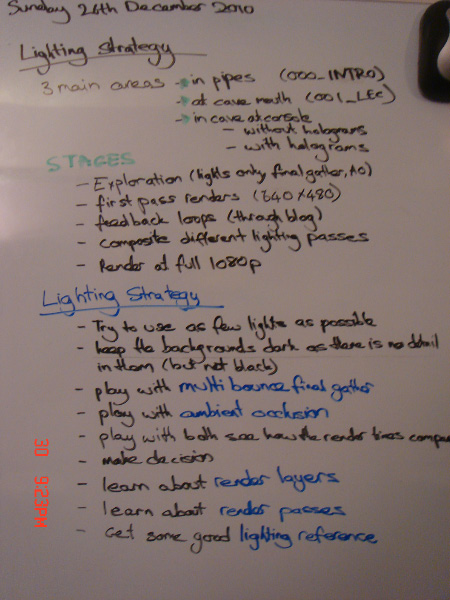 Sunday 26th December 2010
Lighting Strategy
3 main areas → in pipes (000_INTRO)
→ at cave mouth (001_LEC)
→ in cave at console
- without holograms
- with holograms
STAGES
- Exploration (lights only final gather, AO)
- first pass renders (640x480)
- feedback loops (through blog)
- composite different lighting passes
- Render at full 1080p
Lighting Strategy
- Try to use as few lights as possible
- keep the backgrounds dark as there is no detail
in them (but not black)
- play with multi bounce final gather
- play with ambient occlusion
- play with both see how the render times compare
- make decision
- learn about render layers
- learn about render passes
- Get some good lighting reference
30 9:23PM